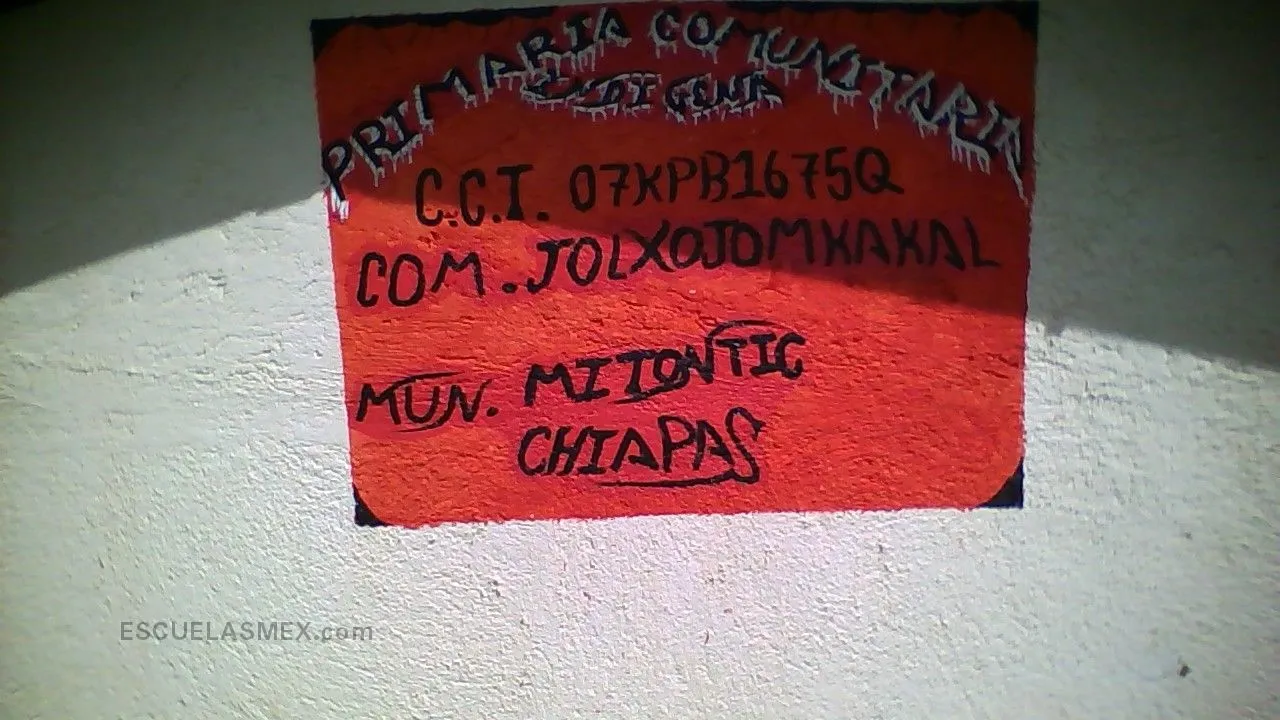 PRIMARIA COMUNITARIA
INDIGENA
C.C.T. 07KPB1675Q
COM. JOLXOJOMKAKAL
MUN. MITONTIC
CHIAPAS
ESCUELASMEX.com